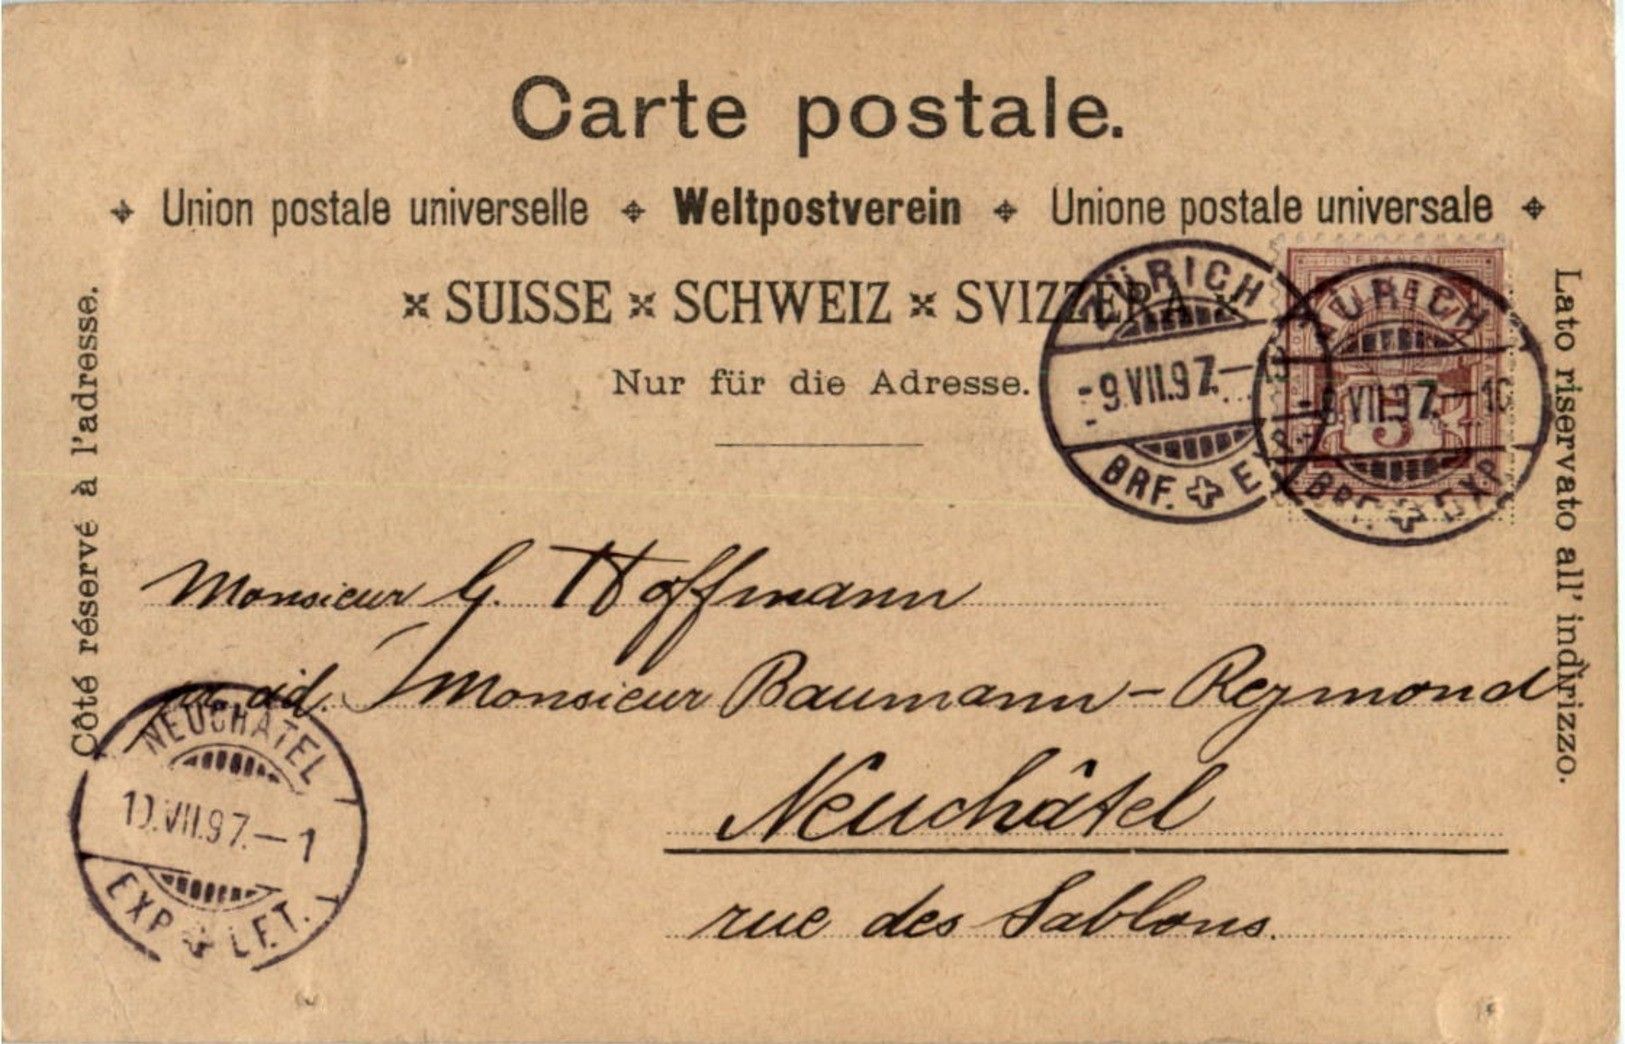 Carte postale.
Union postale universelle Weltpostverein Unione postale universale
SUISSE SCHWEIZ SVIZZERA
Nur für die Adresse.
Côté réservé à l'adresse.
Lato riservato all' indirizzo.
ZÜRICH
-9.VII.97.–
BRF. EXP.
ZÜRICH
-9.VII.97.–
BRF. EXP.
5
Monsieur G. Hoffmann
ad. Monsieur Baumann-Reymond
Neuchâtel
rue des Sablons.
NEUCHATEL
10.VII.97.–1
EXP. LET.